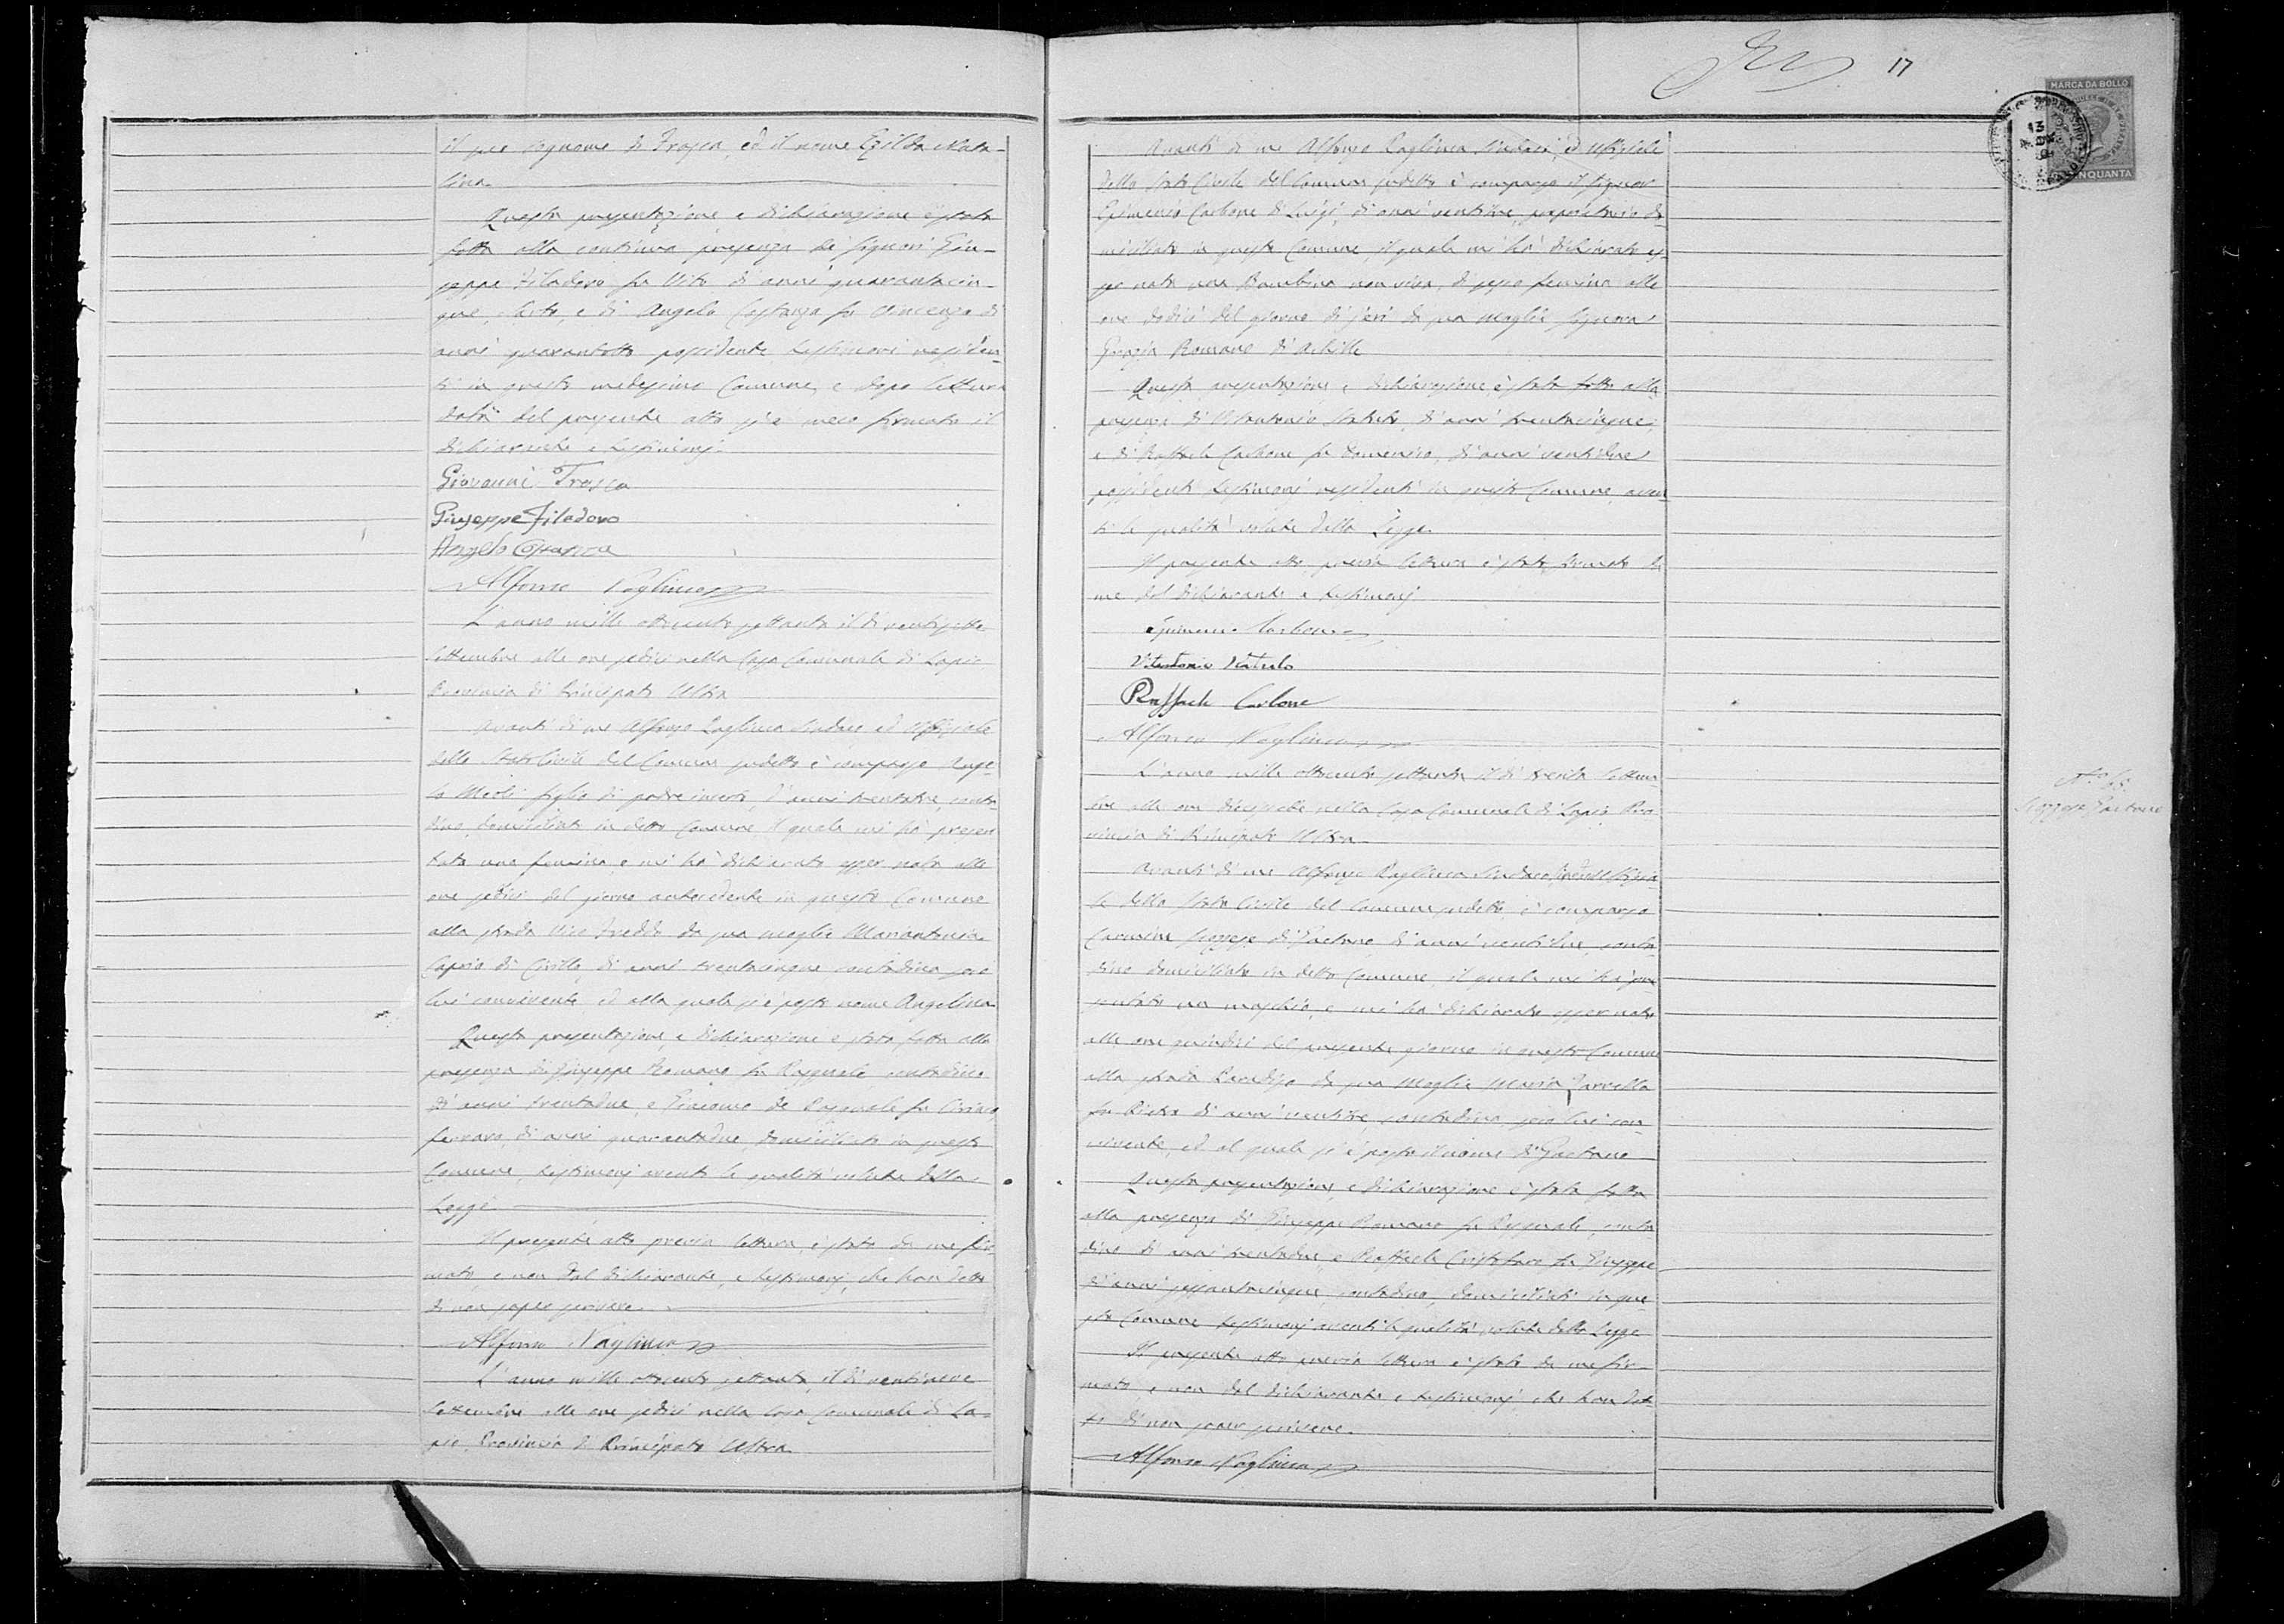 il suo cognome di Trosca, ed il nome Egilda Nata-
lina
Questa presentazione e dichiarazione è stata
fatta alla continua presenza de' signori Giu-
seppe Filadoro fu Vito di anni quarantacin-
que, e di Angelo Costanza fu Vincenzo di
anni quarantotto possidente testimoni residen-
ti in questo medesimo Comune, e dopo lettura
data del presente atto si è meco firmato il
dichiarante e testimonj.
Giovanni Trosca
Giuseppe Filadoro
Angelo Costanza
Alfonso
L'anno mille ottocento settanta il dì ventisette
Settembre alle ore sedici nella Casa Comunale di Lapio
Provincia di Principato Ultra
Avanti di me Alfonso Sindaco ed Uffiziale
dello Stato Civile del Comune sudetto è comparso Ange-
lo Meoli figlio di padre incerto, d'anni trentatre conta-
dino, domiciliato in detto Comune il quale mi ha presen
tato una femina, e mi ha dichiarato esser nata alle
ore sedici del giorno antecedente in questo Comune
alla strada Vico Freddo da sua moglie Mariantonia
Caprio di Cirillo di anni trentacinque contadina seco
lui convivente ed alla quale si è posto nome Angelina
Questa presentazione, e dichiarazione è stata fatta alla
presenza di Giuseppe Romano fu Pasquale contadino
di anni trentadue, e Giacomo de Pasquale fu Ciriaco
ferraro, di anni quarantadue, domiciliati in questo
Comune, testimonj aventi le qualità volute dalla
Legge
Il presente atto previa lettura, è stato da me fir-
mato, e non dal dichiarante, e testimonj, che han detto
di non saper scrivere.
Alfonso
L'anno mille ottocento settanta, il dì ventinove
Settembre alle ore sedici nella Casa Comunale di La-
pio, Provincia di Principato Ultra
17
MARCA DA BOLLO
Avanti di me Alfonso Sindaco, ed Uffiziale
dello Stato Civile del Comune sudetto è comparso il signor
Epimenio Carbone di Luigi, di anni ventitre, proprietario do
miciliato in questo Comune, il quale mi ha dichiarato es
ser nata una Bambina non viva, di sesso femino alle
ore dodici del giorno di jeri da sua moglie signora
Grazia Romano di Achille
Questa presentazione, e dichiarazione, è stata fatta alla
presenza di Vitantonio di anni trentacinque,
e di Raffaele Carbone fu Domenico, di anni ventidue
possidenti testimonj residenti in questo Comune, aven
ti le qualità volute dalla Legge.
Il presente atto previa lettura è stato firmato da
me dal dichiarante e testimonj
Epimenio Carbone
Vitantonio
Raffaele Carbone
Alfonso
L'anno mille ottocento settanta il dì trenta Settem
bre alle ore diecisette nella Casa Comunale di Lapio Pro
vincia di Principato Ultra.
Avanti di me Alfonso Sindaco, ed Uffizia-
le dello Stato Civile del Comune sudetto, è comparso
Carmine di Gaetano, di anni ventidue, conta
dino domiciliato in detto Comune, il quale mi ha pre
sentato un maschio, e mi ha dichiarato esser nato
alle ore quindici del presente giorno in questo Comune
alla strada Paradiso da sua Moglie Maria
fu Pietro di anni ventitre, contadina, seco lui con
vivente, ed al quale si è posto il nome di Gaetano
Questa presentazione, e dichiarazione è stata fatta
alla presenza di Giuseppe Romano fu Pasquale, conta
dino di anni trentadue, e Raffaele Cristofaro fu Giuseppe
d'anni sessantacinque, contadino, domiciliati in que
sto Comune testimonj aventi le qualità volute dalla Legge
Il presente atto previa lettura è stato da me fir-
mato e non dal dichiarante e testimonj, che han det
to di non saper scrivere.
Alfonso
Gaetano